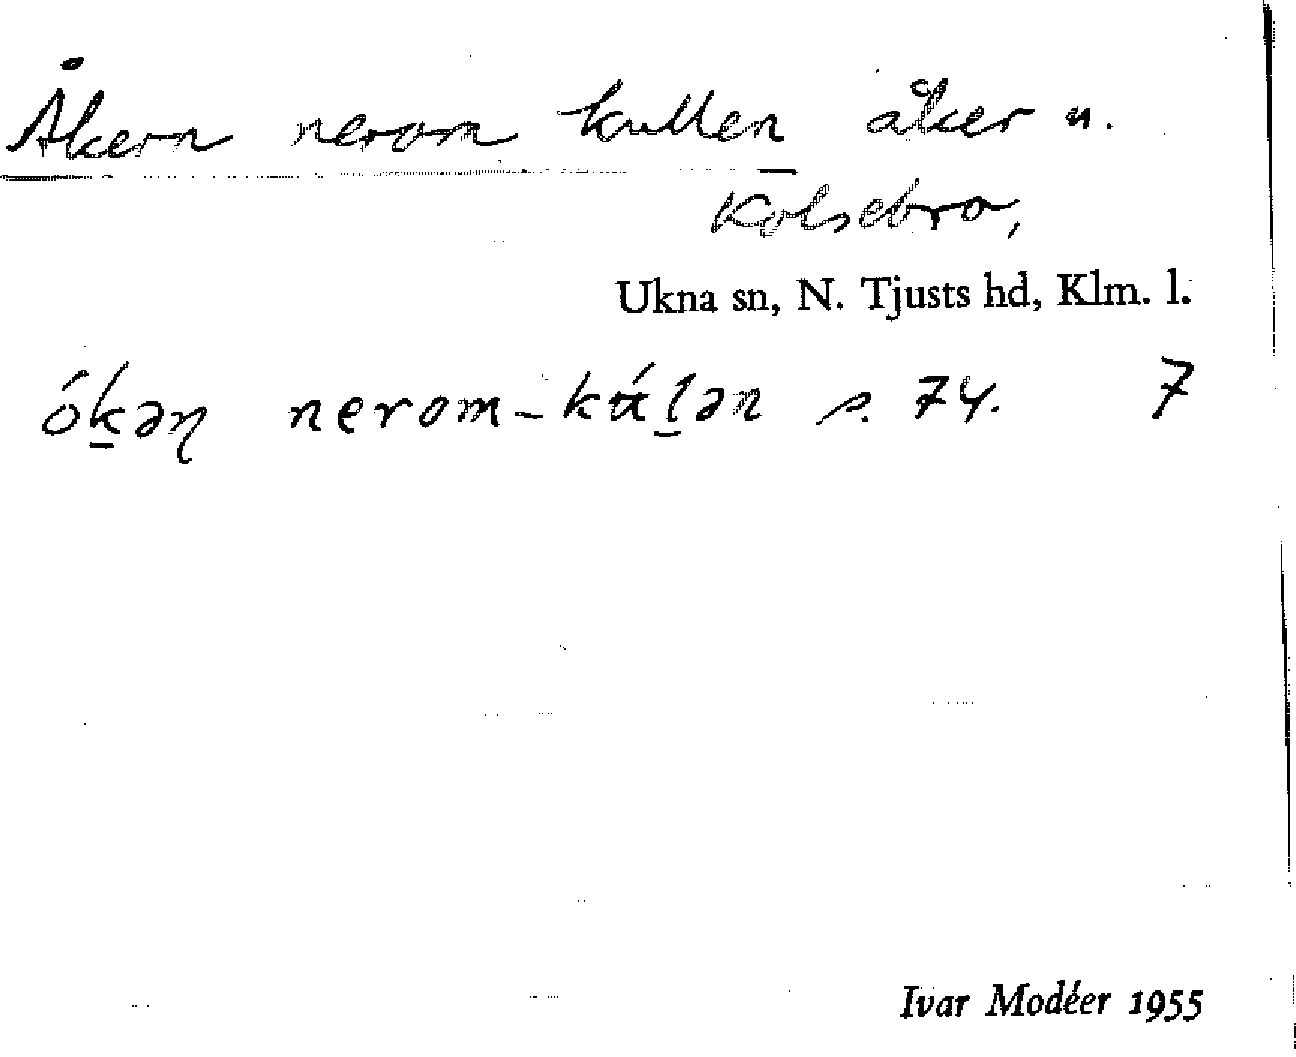 Åkern nerom kullen åker u.
Kolsebro,
Ukna sn, N. Tjusts hd, Klm. l.
ók̠əɳ nerom-kú̵l̠ən s. 74. 7
Ivar Modéer 1955